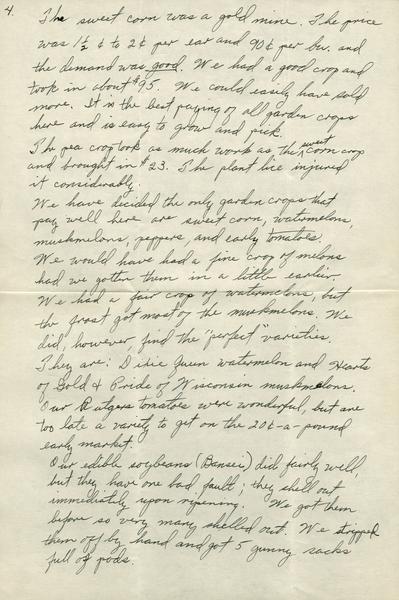 4.
The sweet corn was a gold mine. The price
was 1½ ¢ to 2¢ per ear and 90¢ per bu. and
the demand was good. We had a good crop and
took in about $95. We could easily have sold
more. It is the best paying of all garden crops
here and is easy to grow and pick.
The pea crop took as much work as the sweet corn crop
and brought in $23. The plant lice injured
it considerably.
We have decided the only garden crops that
pay well here are sweet corn, watermelons,
muskmelons, peppers, and early tomatoes.
We would have had a fine crop of melons
had we gotten them in a little earlier.
We had a fair crop of watermelons, but
the frost got most of the muskmelons. We
did, however, find the "perfect" varieties.
They are: Dixie Queen watermelon and Hearts
of Gold & Pride of Wisconsin muskmelons.
Our Rutgers tomatoes were wonderful, but are
too late a variety to get on the 20¢-a-pound
early market.
Our edible soybeans (Bansei) did fairly well,
but they have one bad fault; they shell out
immediately upon ripening. We got them
before so very many shelled out. We stripped
them off by hand and got 5 gunny sacks
full of pods.